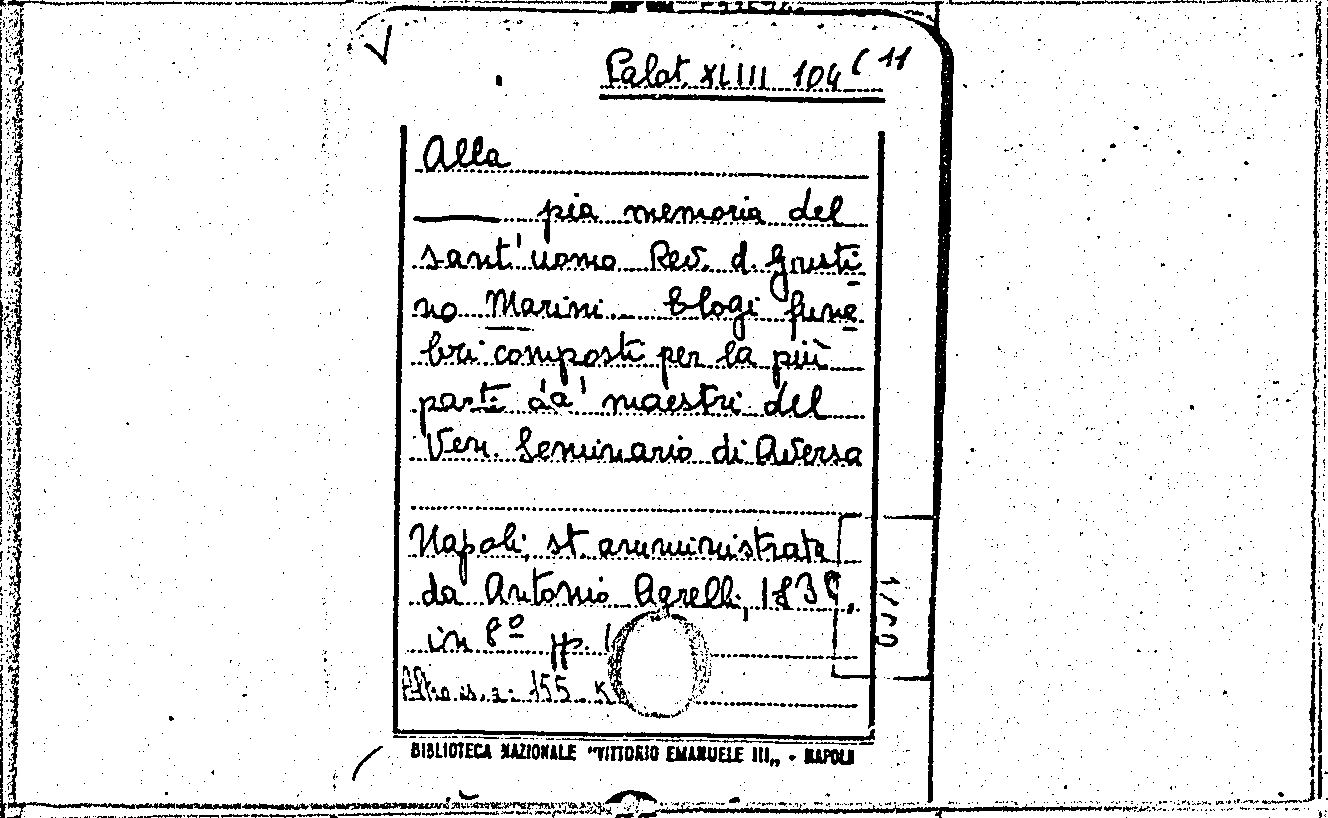 Palat. XLIII 104 (11
Alla
pia memoria del
sant'uomo Rev. d. Giusti
no Marini. Elogi fune
bri composti per la più
parte da' maestri del
Ven. Seminario di Aversa
Napoli, st. amministrata
da Antonio Agrelli, 183
in 8º pp.
155
BIBLIOTECA NAZIONALE "VITTORIO EMANUELE III„ - NAPOLI